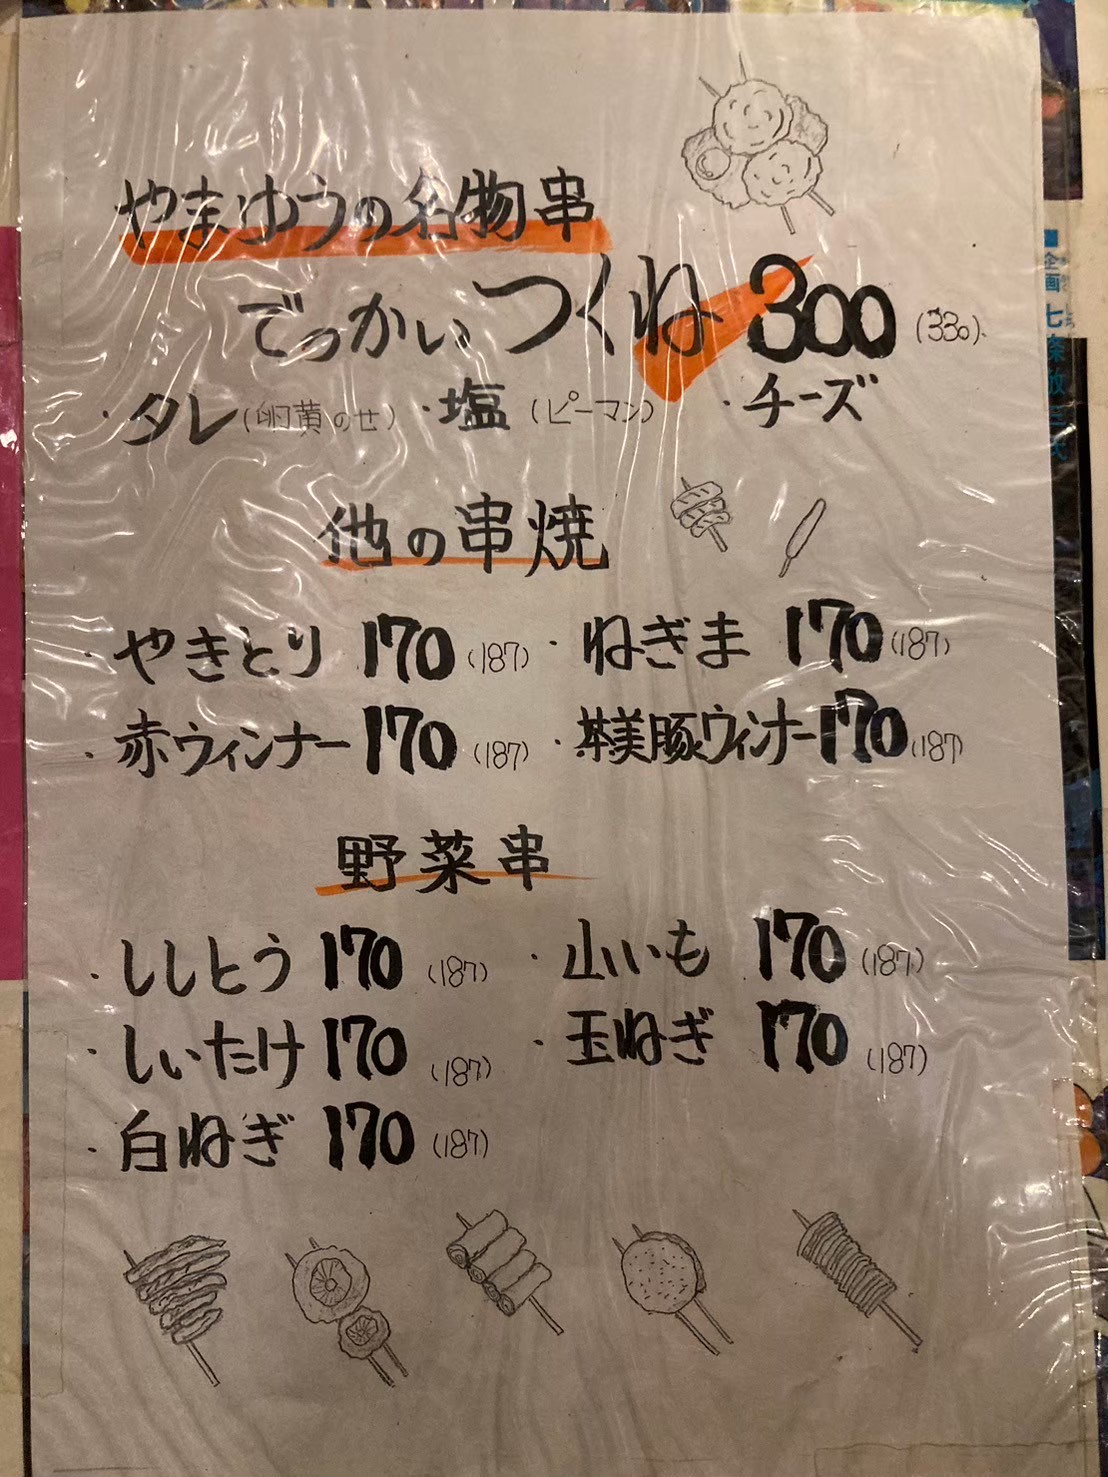 やまゆうの名物串
でっかいつくね 300 (330)
・タレ(卵黄のせ) ・塩(ピーマン) ・チーズ
他の串焼
・やきとり 170 (187) ・ねぎま 170 (187)
・赤ウィンナー 170 (187) ・美豚ウィンナー 170 (187)
野菜串
・ししとう 170 (187) ・山いも 170 (187)
・しいたけ 170 (187) ・玉ねぎ 170 (187)
・白ねぎ 170 (187)
■企画